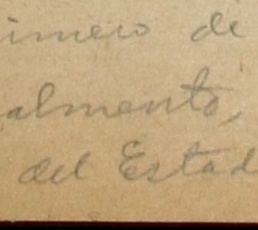 imero de
almento,
del Estad